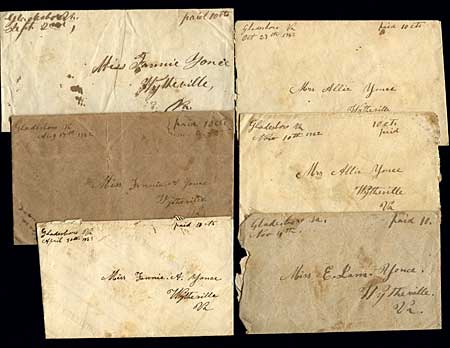 Gladesboro Va.
Sept 2nd
paid 10 cts
Miss Fannie Yonce
Wytheville,
Va
Gladesboro Va
Oct 27th 1862
paid 10 cts
Mrs Allie Yonce
Wytheville
Gladesboro Va
Aug 17th 1862
paid 10 cts
Miss Fannie A Yonce
Wytheville
Gladesboro Va
Nov 10th 1862
10 cts
paid
Mrs Allie Yonce
Wytheville
Va
Gladesboro Va
April 30th
paid 10 cts
Miss Fannie A. Yonce
Wytheville
Va
Gladesboro Va.
Nov 4th.
paid 10.
Miss E. Yonce.
Wytheville.
Va.